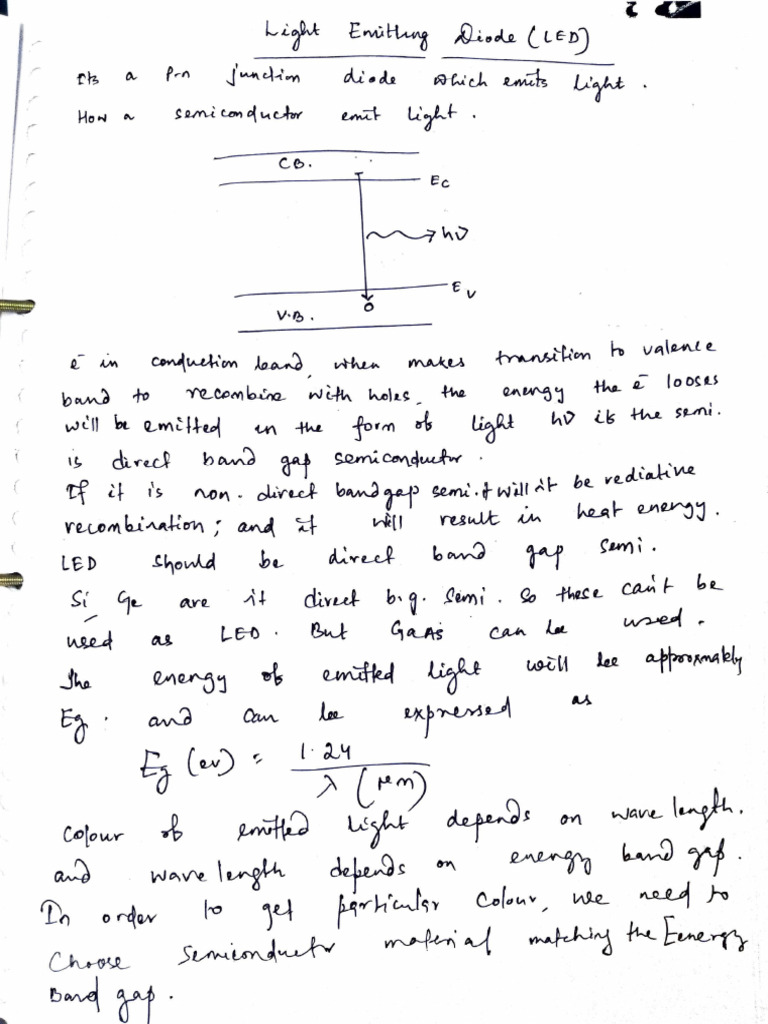 Light Emitting Diode (LED)
Its a P-n junction diode which emits light.
How a semiconductor emit light.
C.B.
Ec
hν
Ev
V.B.
e⁻ in conduction band, when makes transition to valence
band to recombine with holes, the energy the e⁻ looses
will be emitted in the form of light hν if the semi.
is direct band gap semiconductor.
If it is non-direct bandgap semi. it will be rediative
recombination; and it will result in heat energy.
LED should be direct band gap semi.
Si Ge are direct b.g. semi. so these can't be
used as LED. But GaAs can be used.
The energy of emitted light will be approxmately
Eg. and can be expressed as
Eg (ev) = 1.24 / λ (μm)
Colour of emitted light depends on wave length.
and wave length depends on energy band gap.
In order to get particular colour, we need to
Choose semiconductor material matching the Eenergy
Band gap.